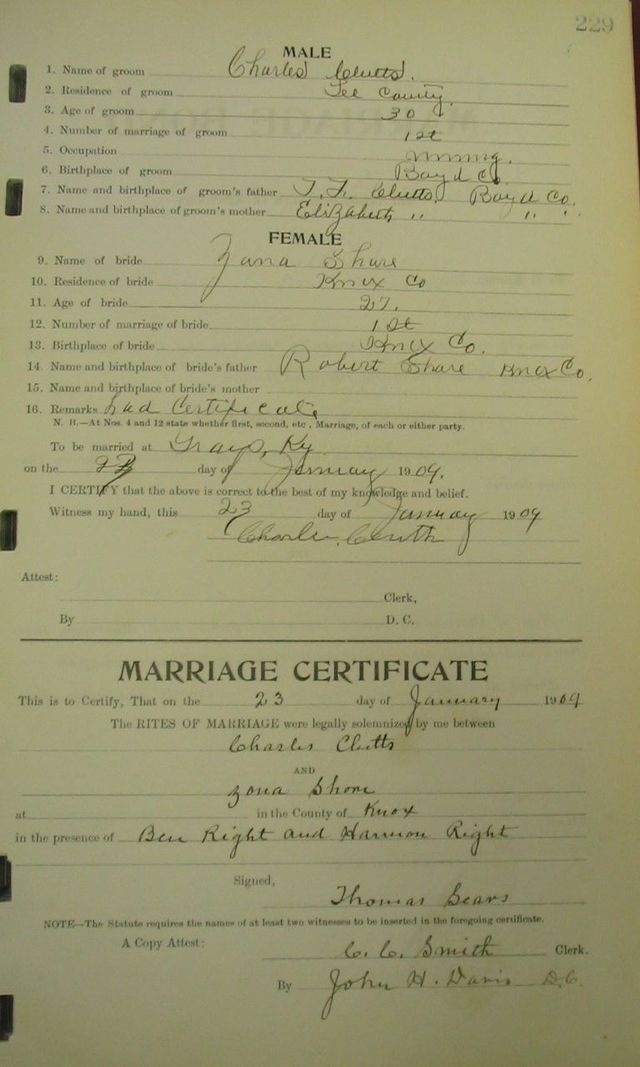 229
MALE
1. Name of groom Charles Clutts.
2. Residence of groom Lee County.
3. Age of groom 30
4. Number of marriage of groom 1st
5. Occupation mining.
6. Birthplace of groom Boyd Co.
7. Name and birthplace of groom's father T. F. Clutts. Boyd Co.
8. Name and birthplace of groom's mother Elizabeth " " "
FEMALE
9. Name of bride Zana Shore
10. Residence of bride Knox Co
11. Age of bride 27.
12. Number of marriage of bride 1st
13. Birthplace of bride Knox Co.
14. Name and birthplace of bride's father Robert Shore Knox Co.
15. Name and birthplace of bride's mother
16. Remarks had Certificate
N. B.—At Nos. 4 and 12 state whether first, second, etc., Marriage, of each or either party.
To be married at Grays, Ky.
on the 23 day of January 1909.
I CERTIFY that the above is correct to the best of my knowledge and belief.
Witness my hand, this 23 day of January 1909
Charlie Clutts
Attest:
Clerk,
By D. C.
MARRIAGE CERTIFICATE
This is to Certify, That on the 23 day of January 1909
The RITES OF MARRIAGE were legally solemnized by me between
Charles Clutts
AND
Zona Shore
at in the County of Knox
in the presence of Ben Right and Harmon Right
Signed,
Thomas Sears
NOTE—The Statute requires the names of at least two witnesses to be inserted in the foregoing certificate.
A Copy Attest: C. C. Smith Clerk.
By John H. Davis D.C.